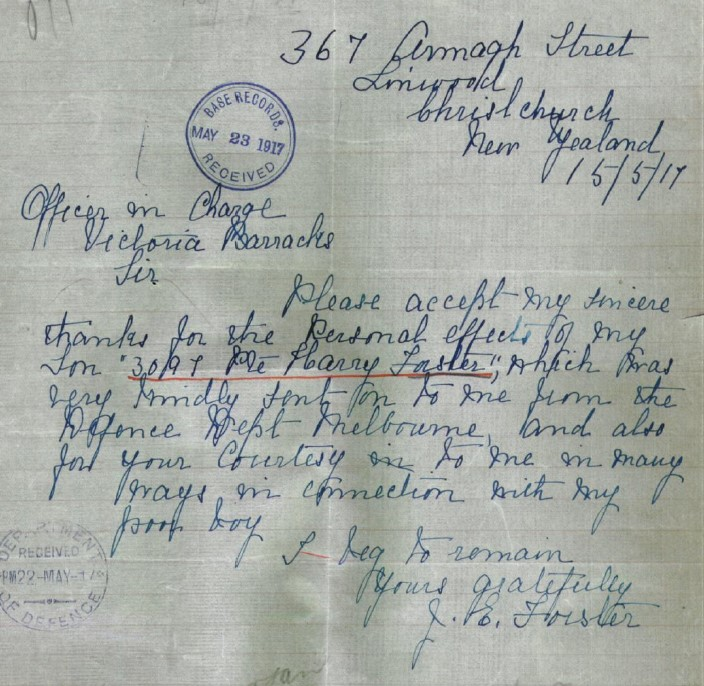 367 Armagh Street
Linwood
Christchurch
New Zealand
15/5/17
BASE RECORDS.
MAY 23 1917
RECEIVED
Officer in Charge
Victoria Barracks
Sir
Please accept my sincere
thanks for the Personal effects of my
Son "3097 Pte Harry Forster", which was
very kindly sent on to me from the
Defence Dept Melbourne, and also
for your Courtesy in to me in many
ways in connection with my
poor boy
I beg to remain
Yours gratefully
J. E. Forster
RECEIVED
PM 22-MAY-17
OF DEFENCE